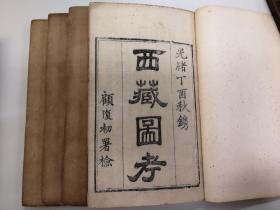 光緒丁酉秋鐫
西藏圖考
顧復初署檢